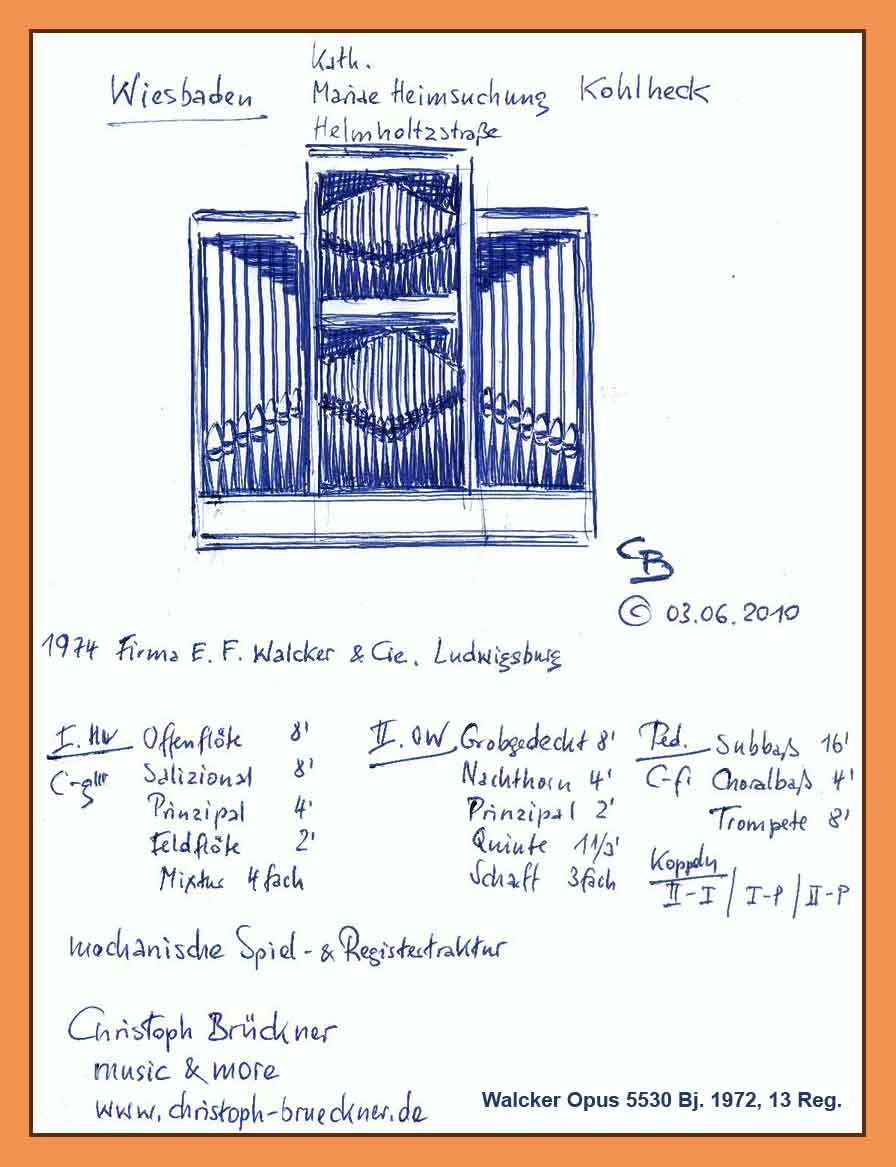 Kath.
Wiesbaden Mariae Heimsuchung Kohlheck
Helmholtzstraße
CB
© 03.06.2010
1974 Firma E. F. Walcker & Cie. Ludwigsburg
I. HW Offenflöte 8' II. OW Grobgedeckt 8' Ped. Subbaß 16'
C-g''' Salizional 8' Nachthorn 4' C-f' Choralbaß 4'
Prinzipal 4' Prinzipal 2' Trompete 8'
Feldflöte 2' Quinte 1 1/3' Koppeln
Mixtur 4fach Scharff 3fach II-I / I-P / II-P
mechanische Spiel- & Registertraktur
Christoph Brückner
music & more
www.christoph-brueckner.de
Walcker Opus 5530 Bj. 1972, 13 Reg.